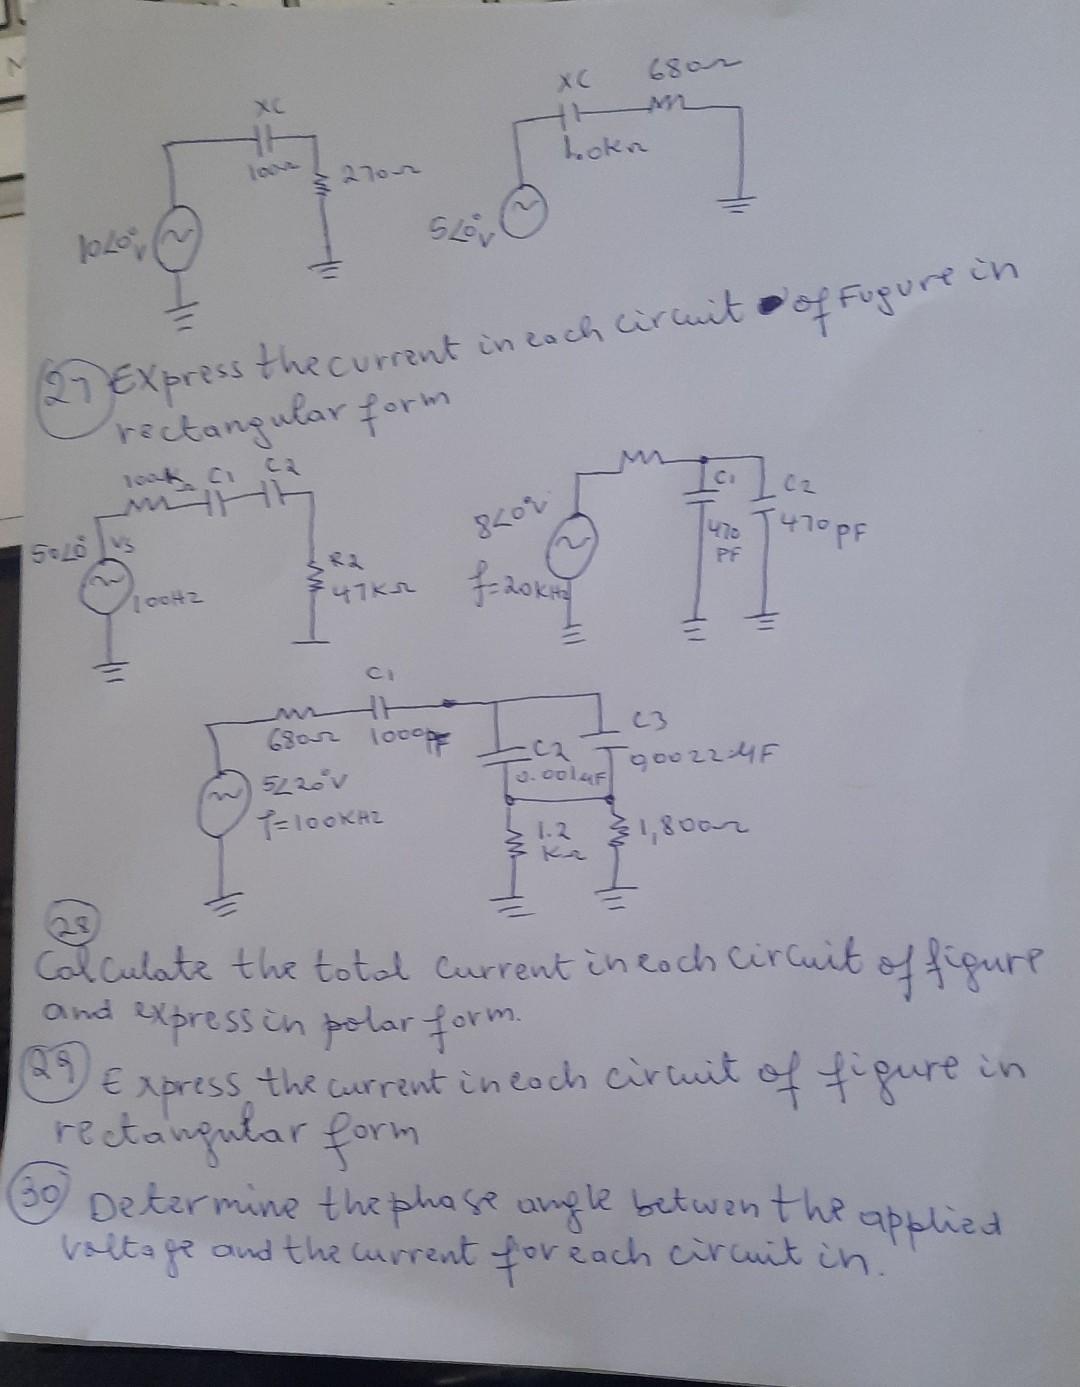 XC 680Ω
XC
100Ω 270Ω 1.0KΩ
10∠0° V 5∠0° V
27 Express the current in each circuit of Fugure in
rectangular form
100KΩ C1 C2
50∠0° Vs
100Hz
R2
47KΩ
8∠0°V
f=20KHz
C1 C2
470 470PF
PF
C1
680Ω 1000PF
5∠20°V
f=100KHz
C2
0.001μF
C3
1.2 1,800Ω
KΩ
28
Calculate the total current in each circuit of figure
and express in polar form.
29 Express the current in each circuit of figure in
rectangular form
30 Determine the phase angle betwen the applied
voltage and the current for each circuit in.